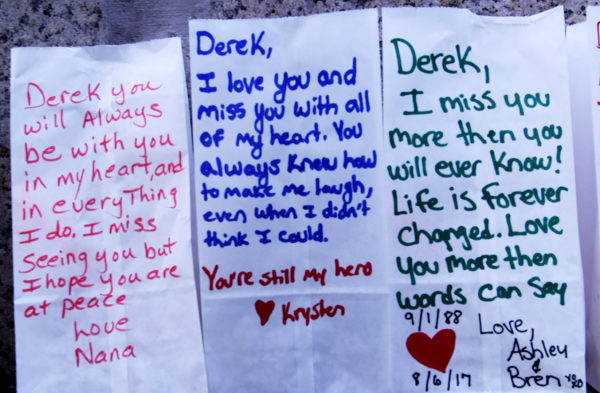 Derek you
will Always
be with you
in my heart, and
in everyThing
I do. I miss
Seeing you but
I hope you are
at peace
Love
Nana
Derek,
I love you and
miss you with all
of my heart. You
always knew how
to make me laugh,
even when I didn't
think I could.
You're still my hero
Krysten
Derek,
I miss you
more then you
will ever know!
Life is forever
changed. Love
you more then
words can say
9/1/88
8/6/17
Love,
Ashley
&
Bren